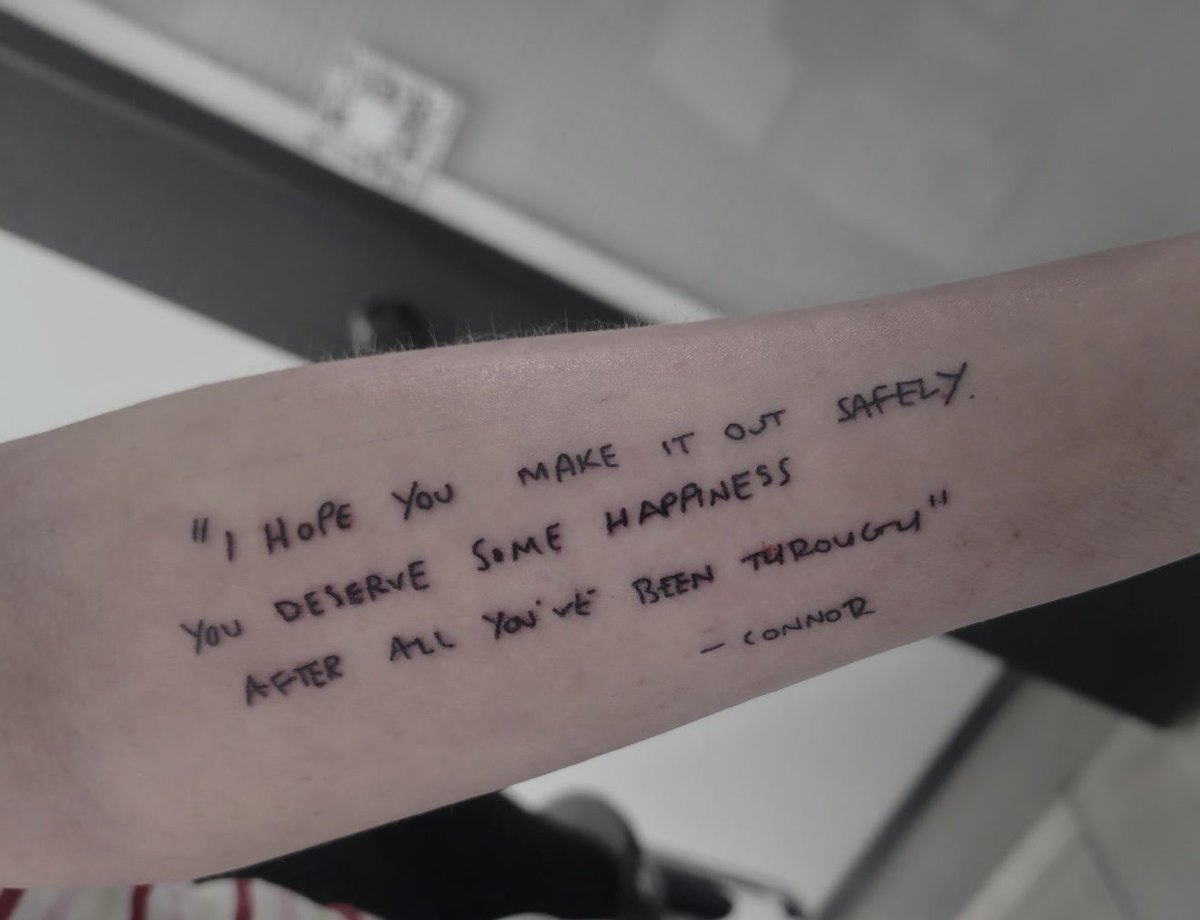 "I HOPE YOU MAKE IT OUT SAFELY.
YOU DESERVE SOME HAPPINESS
AFTER ALL YOU'VE BEEN THROUGH"
– CONNOR